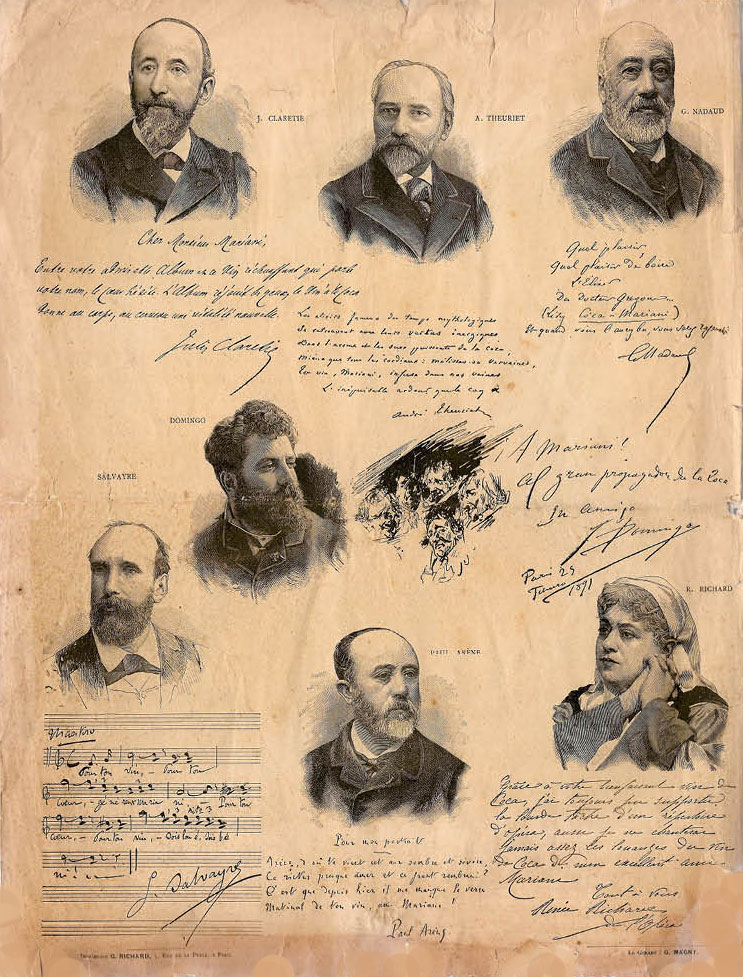 J. CLARETIE
A. THEURIET
G. NADAUD
Cher Monsieur Mariani,
Entre votre admirable Album et ce Vin réchauffant qui porte
votre nom, le cœur hésite. L'Album réjouit les yeux, le Vin de Coca
donne au corps, au cerveau une vitalité nouvelle.
Jules Claretie
Les divins faunes du temps mythologique
Se retrouvent avec leurs vertus énergiques
Dans l'arome et les sucs puissants de la coca,
Mieux que tous les cordiaux: mélisses ou verveines,
Ton vin, Mariani, infuse dans nos veines
André Theuriet
Quel plaisir
Quel plaisir de boire
L'Elixir
Du docteur
(Lisez Coca-Mariani)
G. Nadaud
DOMINGO
SALVAYRE
¡A Mariani!
Al gran propagador de la Coca
Su amigo
J. Domingo
Paris 29
1891
R. RICHARD
PAUL ARÈNE
Maestoso
Pour ton vin, - Pour ton
cœur, je ne sais Pour ton
cœur, - Pour ton vin, - Dois-je
G. Salvayre
Pour mon portrait
Ariès, d'où te vient cet air sombre et sévère,
Ce rictus presque amer et ce front rembruni?
C'est que depuis hier il me manque le verre
Matinal de ton vin, ami Mariani!
Paul Arène
Grâce à votre bienfaisant vin de
Coca, j'ai toujours pu supporter
la lourde tâche d'un répertoire
d'opéra, aussi je ne chanterai
jamais assez les louanges du vin
de Coca de mon excellent ami
Mariani
Tout à vous
Renée Richard
de l'Opéra
Imprimerie G. RICHARD, 7, RUE DE LA PERLE, À PARIS.
LE GÉRANT : G. MAGNY.